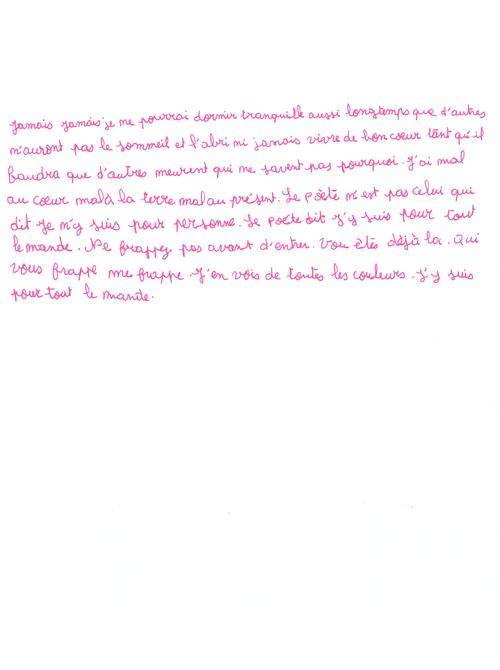 Jamais jamais je ne pourrai dormir tranquille aussi longtemps que d'autres
n'auront pas le sommeil et l'abri ni jamais vivre de bon coeur tant qu'il
faudra que d'autres meurent qui ne savent pas pourquoi. J'ai mal
au coeur mal à la terre mal au présent. Le poète n'est pas celui qui
dit Je n'y suis pour personne. Le poète dit J'y suis pour tout
le monde. Ne frappez pas avant d'entrer. Vous êtes déjà la. Qui
vous frappe me frappe. J'en vois de toutes les couleurs. J'y suis
pour tout le monde.